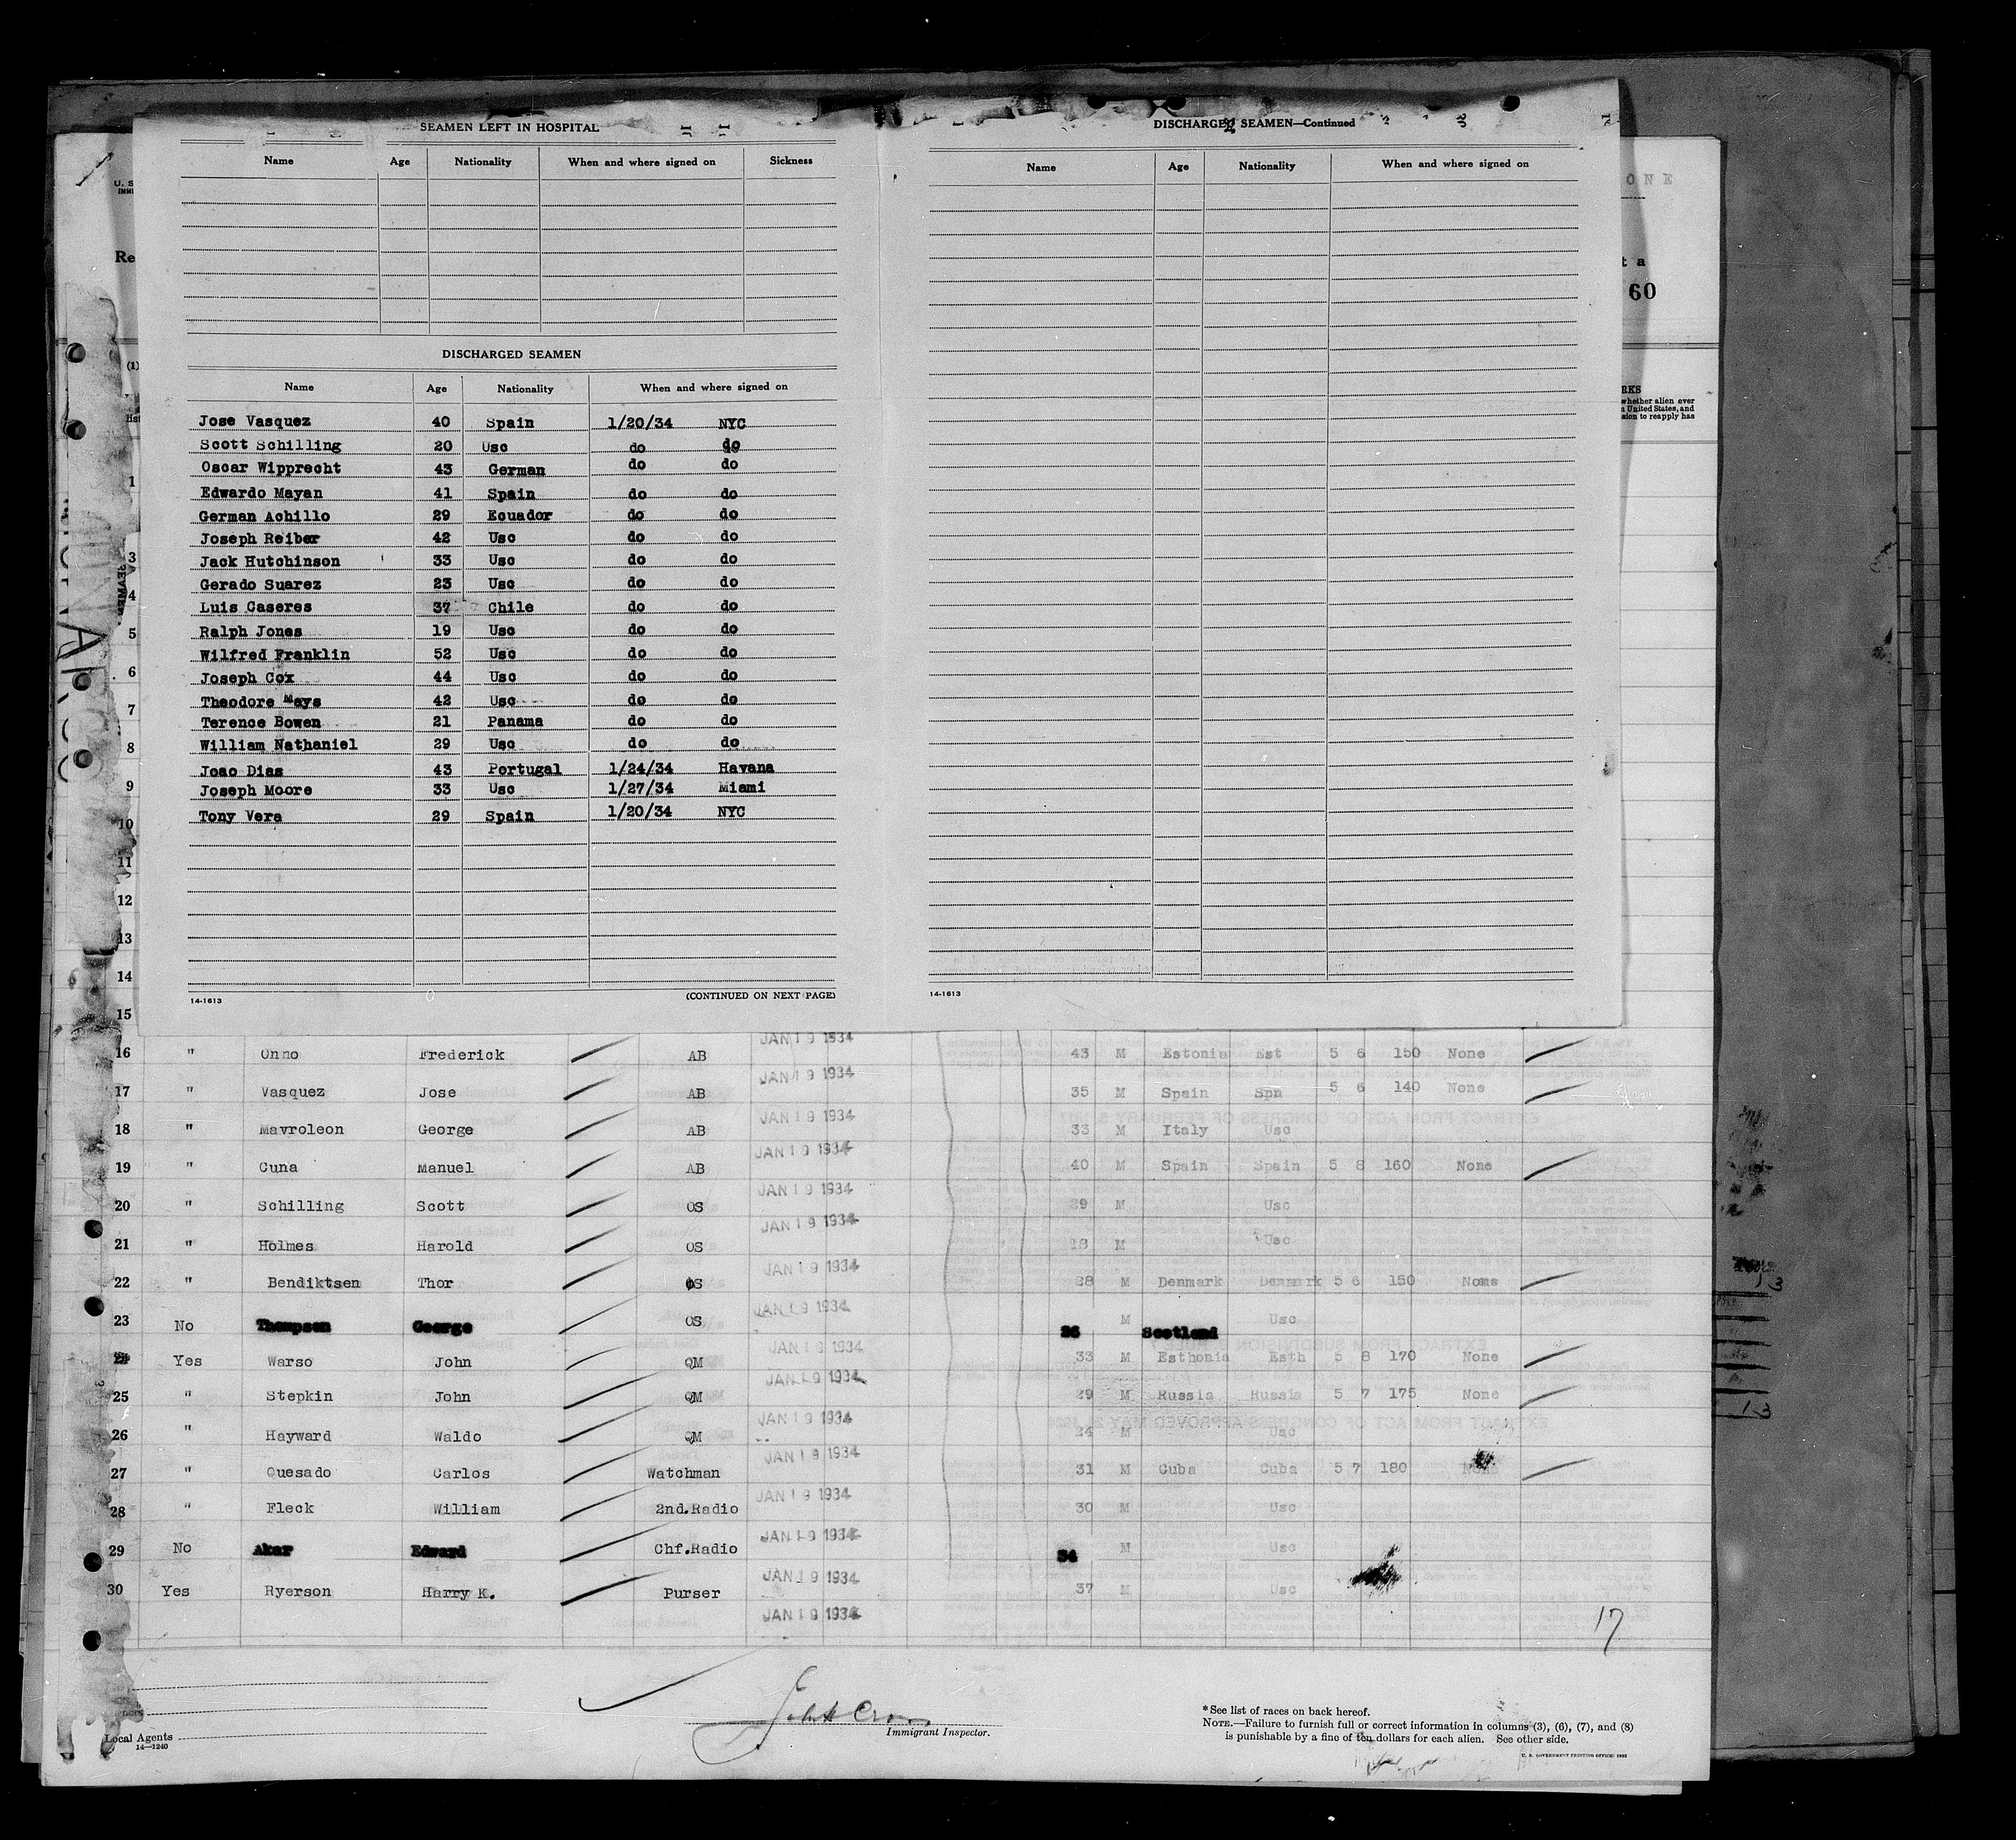 SEAMEN LEFT IN HOSPITAL
Name Age Nationality When and where signed on Sickness
DISCHARGED SEAMEN
Name Age Nationality When and where signed on
Jose Vasquez 40 Spain 1/20/34 NYC
Scott Schilling 20 Usc do do
Oscar Wipprecht 43 German do do
Edwardo Mayan 41 Spain do do
German Achillo 29 Ecuador do do
Joseph Reiber 42 Usc do do
Jack Hutchinson 33 Usc do do
Gerado Suarez 23 Usc do do
Luis Caseres 37 Chile do do
Ralph Jones 19 Usc do do
Wilfred Franklin 52 Usc do do
Joseph Cox 44 Usc do do
Theodore Mays 42 Usc do do
Terence Bowen 21 Panama do do
William Nathaniel 29 Usc do do
Joao Dias 43 Portugal 1/24/34 Havana
Joseph Moore 33 Usc 1/27/34 Miami
Tony Vera 29 Spain 1/20/34 NYC
14-1613 (CONTINUED ON NEXT PAGE)
DISCHARGED SEAMEN—Continued
Name Age Nationality When and where signed on
14-1613
U. S
IMMI
Re
(1)
ONE
t a
60
RKS
whether alien ever
United States, and
sion to reapply has
1
3
4
5
6
7
8
9
10
11
12
13
14
15
16 " Onno Frederick AB JAN 19 1934 43 M Estonia Est 5 6 150 None
17 " Vasquez Jose AB JAN 19 1934 35 M Spain Spn 5 6 140 None
18 " Mavroleon George AB JAN 19 1934 33 M Italy Usc
19 " Cuna Manuel AB JAN 19 1934 40 M Spain Spain 5 8 160 None
20 " Schilling Scott OS JAN 19 1934 29 M Usc
21 " Holmes Harold OS JAN 19 1934 18 M Usc
22 " Bendiktsen Thor OS JAN 19 1934 28 M Denmark Denmark 5 6 150 None
23 No Thompson George OS JAN 19 1934 26 M Scotland Usc
24 Yes Warso John QM JAN 19 1934 33 M Esthonia Esth 5 8 170 None
25 " Stepkin John QM JAN 19 1934 29 M Russia Russia 5 7 175 None
26 " Hayward Waldo QM JAN 19 1934 24 M Usc
27 " Quesado Carlos Watchman JAN 19 1934 31 M Cuba Cuba 5 7 180 None
28 " Fleck William 2nd.Radio JAN 19 1934 30 M Usc
29 No Akar Edward Chf.Radio JAN 19 1934 34 M Usc
30 Yes Ryerson Harry K. Purser JAN 19 1934 37 M Usc
JAN 19 1934
17
Immigrant Inspector.
Local Agents
14—1240
* See list of races on back hereof.
NOTE.—Failure to furnish full or correct information in columns (3), (6), (7), and (8)
is punishable by a fine of ten dollars for each alien. See other side.
U. S. GOVERNMENT PRINTING OFFICE: 1933